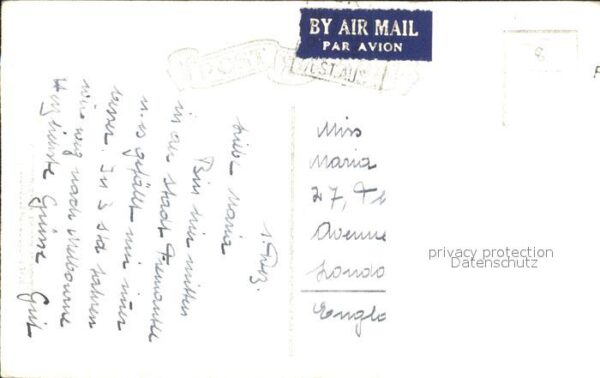 BY AIR MAIL
PAR AVION
POST
8
1. Dez.
Liebe Maria
Bin hier mitten
in der Stadt Fremantle
u. es gefällt mir immer
besser. In 3 Std fahren
wir weg nach Melbourne
Herzlichste Grüsse Grit
Miss
Maria
27, Th
Avenue
Londo
Engla
privacy protection
Datenschutz